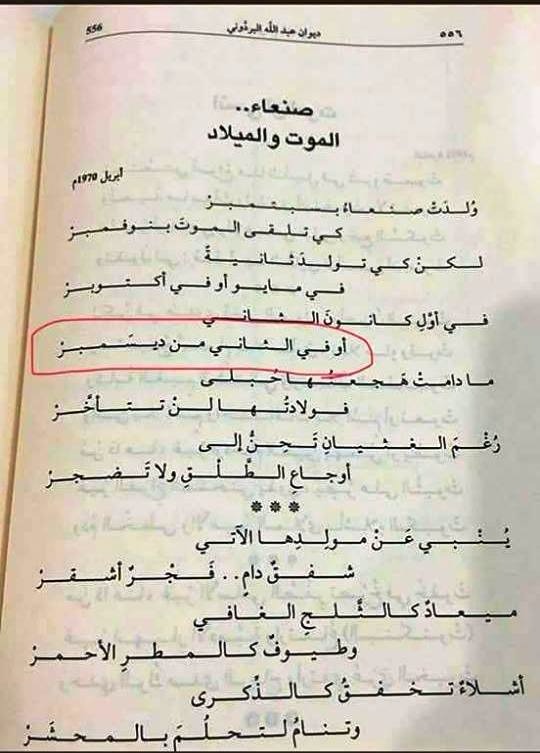 ٥٥٦ ديوان عبد الله البردّوني 556
صنعاء..
الموت والميلاد
أبريل 1970م
وُلدَتْ صنعاءُ بسبتمبرْ
كي تلقى الموتَ بنوفمبرْ
لكنْ كي تولدَ ثانيةً
في مايو أو في أكتوبرْ
في أوّلِ كانونَ الثاني
أو في الثاني من ديسَمبرْ
ما دامتْ هَجعتُها حُبلى
فولادتُها لنْ تتأخَّرْ
رُغْمَ الغثيانِ تَحِنُّ إلى
أوجاعِ الطَّلْقِ ولا تَضجرْ
***
يُنْبي عَنْ مولدِها الآتي
شفقٌ دامٍ.. فَجْرٌ أشقرْ
ميعادٌ كالثَّلجِ الغافي
وطيوفٌ كالمطرِ الأحمرْ
أشلاءٌ تخفقُ كالذِّكرى
وتنامُ لتحلُمَ بالمحشَرْ